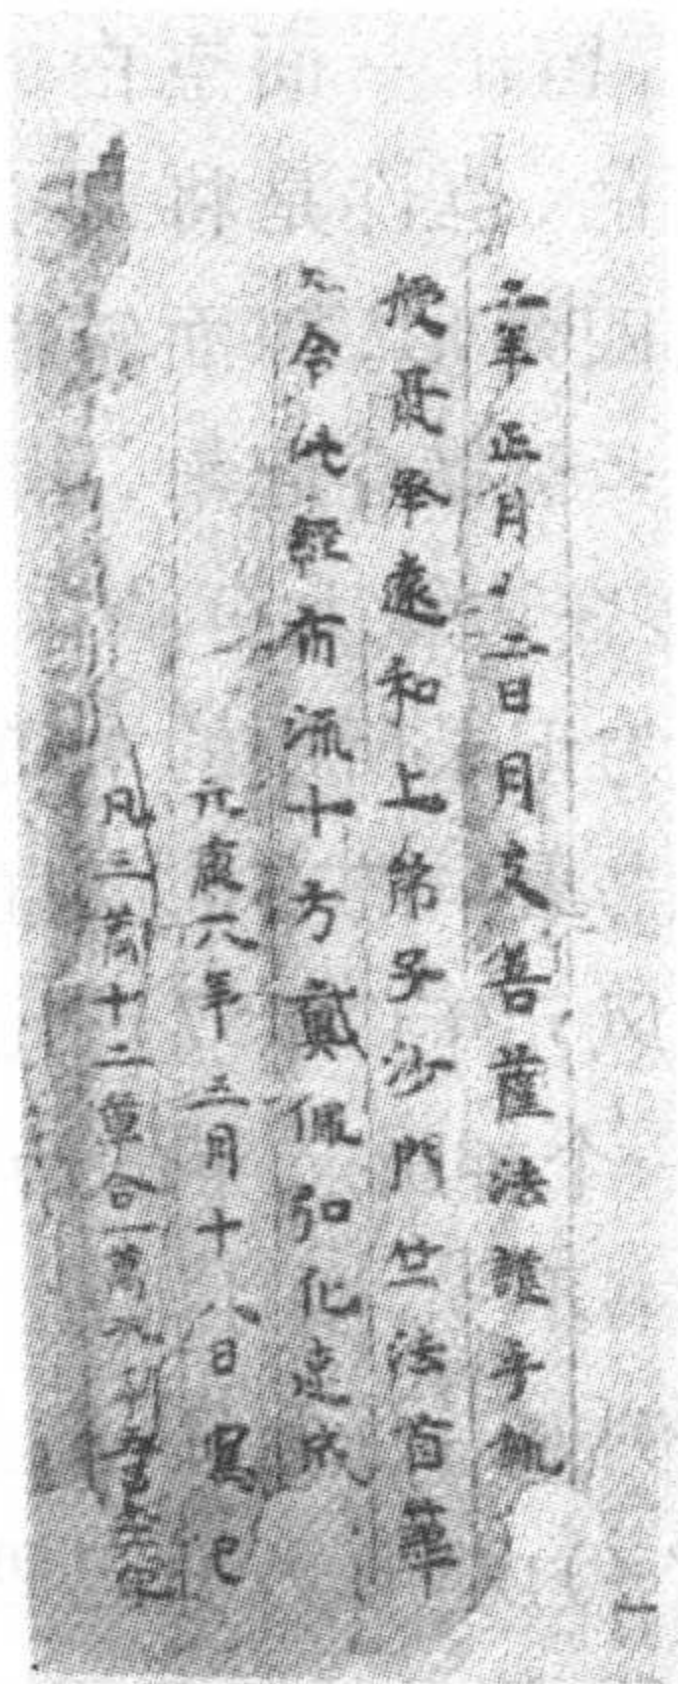 二年正月二日月支菩薩法護手執
授聶承遠和上弟子沙門竺法首筆
令此經布流十方戴佩弘化速成
元康六年三月十八日寫已
凡三萬十二章合一萬九千